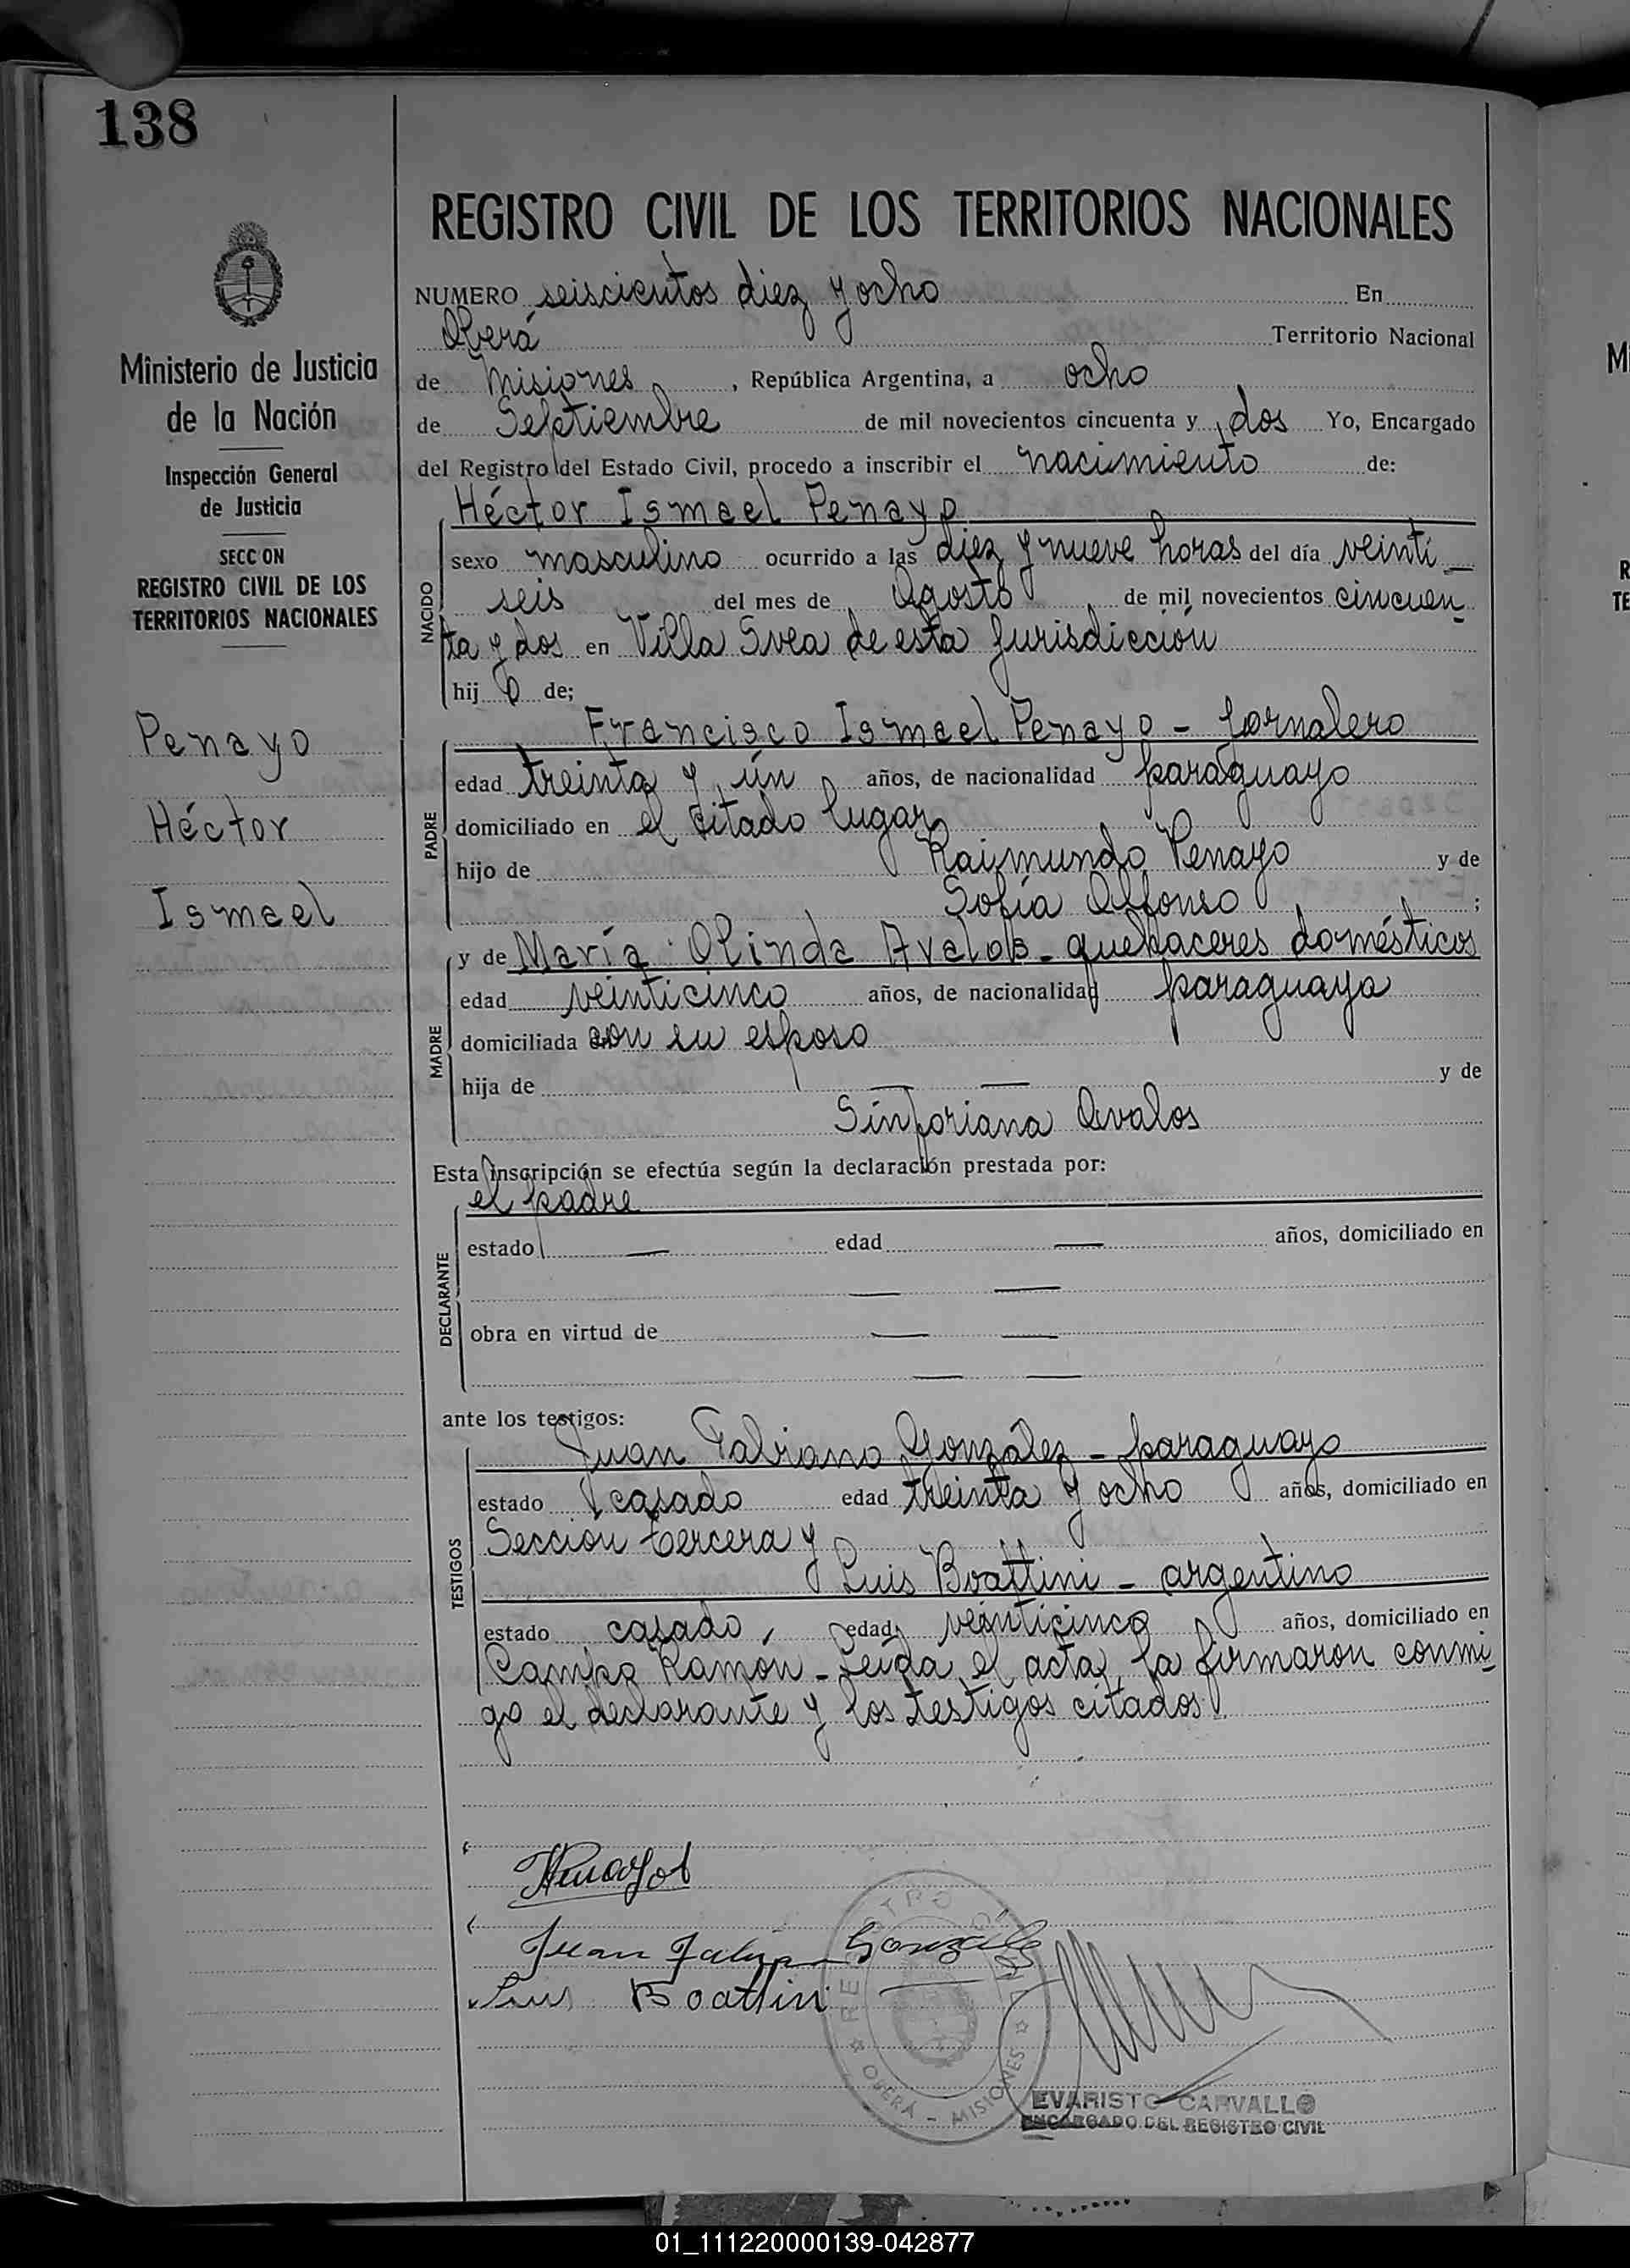 138
REGISTRO CIVIL DE LOS TERRITORIOS NACIONALES
Ministerio de Justicia
de la Nación
Inspección General
de Justicia
SECC ON
REGISTRO CIVIL DE LOS
TERRITORIOS NACIONALES
Penayo
Héctor
Ismael
NUMERO seiscientos diez y ocho En
Oberá Territorio Nacional
de Misiones, República Argentina, a ocho
de Septiembre de mil novecientos cincuenta y dos Yo, Encargado
del Registro del Estado Civil, procedo a inscribir el nacimiento de:
Héctor Ismael Penayo
NACIDO
sexo masculino ocurrido a las diez y nueve horas del día veinti_
seis del mes de Agosto de mil novecientos cincuen_
ta y dos en Villa Svea de esta jurisdicción
hij o de;
Francisco Ismael Penayo - jornalero
PADRE
edad treinta y ún años, de nacionalidad paraguayo
domiciliado en el citado lugar
hijo de Raimundo Penayo y de
Sofía Alfonso ;
y de María Olinda Avalos - quehaceres domésticos
MADRE
edad veinticinco años, de nacionalidad paraguaya
domiciliada con su esposo
hija de — — y de
Sinforiana Avalos
Esta inscripción se efectúa según la declaración prestada por:
el padre
DECLARANTE
estado — edad — años, domiciliado en
— —
obra en virtud de — —
— —
ante los testigos:
Juan Fabiano González - paraguayo
TESTIGOS
estado casado edad treinta y ocho años, domiciliado en
Sección tercera y
Luis Boattini - argentino
estado casado, edad veinticinco años, domiciliado en
Campo Ramón - Leída el acta, la firmaron conmi_
go el declarante y los testigos citados.
Juan Gonzale
Luis Boattini
REGISTRO
OBERÁ - MISIONES
EVARISTO CARVALLO
ENCARGADO DEL REGISTRO CIVIL
Mi
R
TE
01_111220000139-042877